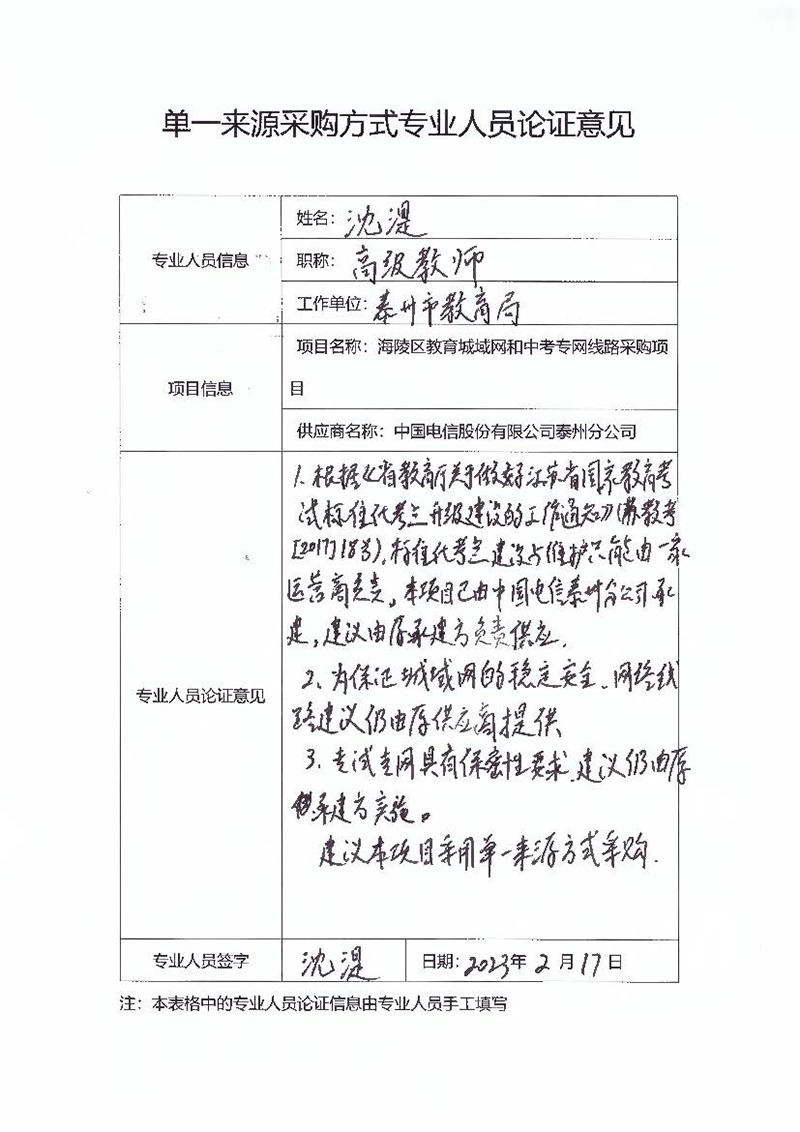 单一来源采购方式专业人员论证意见
专业人员信息
姓名：沈湜
职称：高级教师
工作单位：泰州市教育局
项目信息
项目名称：海陵区教育城域网和中考专网线路采购项
目
供应商名称：中国电信股份有限公司泰州分公司
专业人员论证意见
1、根据《省教育厅关于做好江苏省国家教育考
试标准化考点升级建设的工作通知》（苏教考
[2017]18号），标准化考点建设与维护只能由一家
运营商负责，本项目已由中国电信泰州分公司承
建，建议由原承建方负责供应.
2、为保证城域网的稳定安全、网络线
路建议仍由原供应商提供
3、考试专网具有保密性要求、建议仍由原
承建方实施。
建议本项目采用单一来源方式采购.
专业人员签字
沈湜
日期：2023年2月17日
注：本表格中的专业人员论证信息由专业人员手工填写